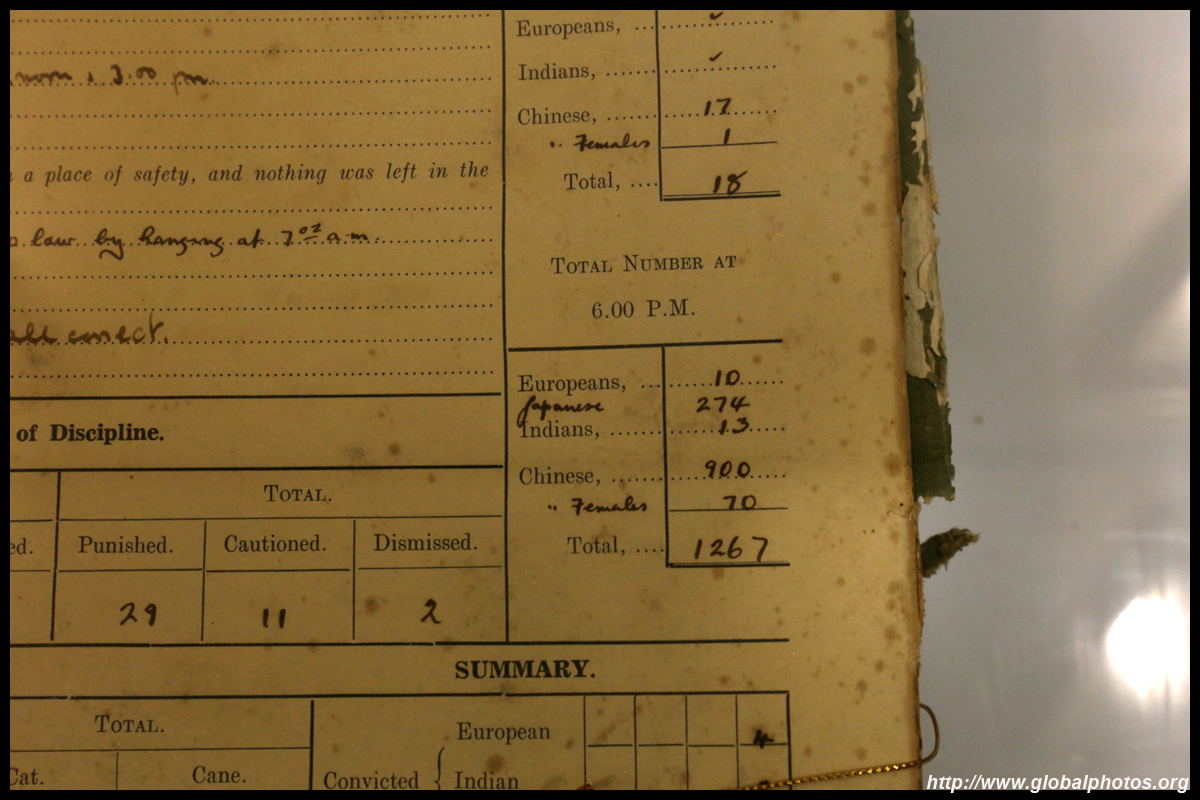 Europeans, ...
Indians, ......
noon & 3.00 pm.
Chinese, ...... 17
" Females 1
a place of safety, and nothing was left in the
Total, .... 18
law by hanging at 7.02 a.m.
TOTAL NUMBER AT
6.00 P.M.
all correct.
Europeans, ... 10
Japanese 274
Indians, ...... 13
of Discipline.
Chinese, ...... 900
TOTAL.
" Females 70
ed. Punished. Cautioned. Dismissed.
Total, .... 1267
29 11 2
SUMMARY.
TOTAL.
European 4
Cat. Cane.
Convicted { Indian
http://www.globalphotos.org